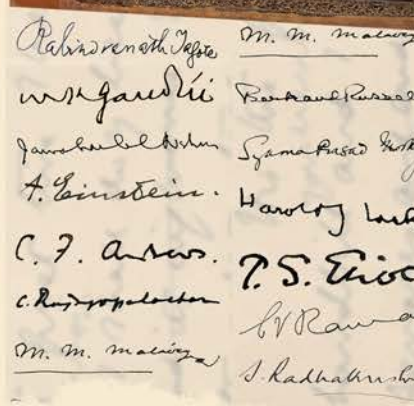 Rabindranath Tagore
M K Gandhi
Jawaharlal Nehru
A. Einstein.
C. F. Andrews.
C. Rajagopalachari
M. M. Malaviya
M. M. Malaviya
Bertrand Russel
Syama Prasad
Harold J. Lask
T. S. Eliot
CV Rama
S. Radhakrishn